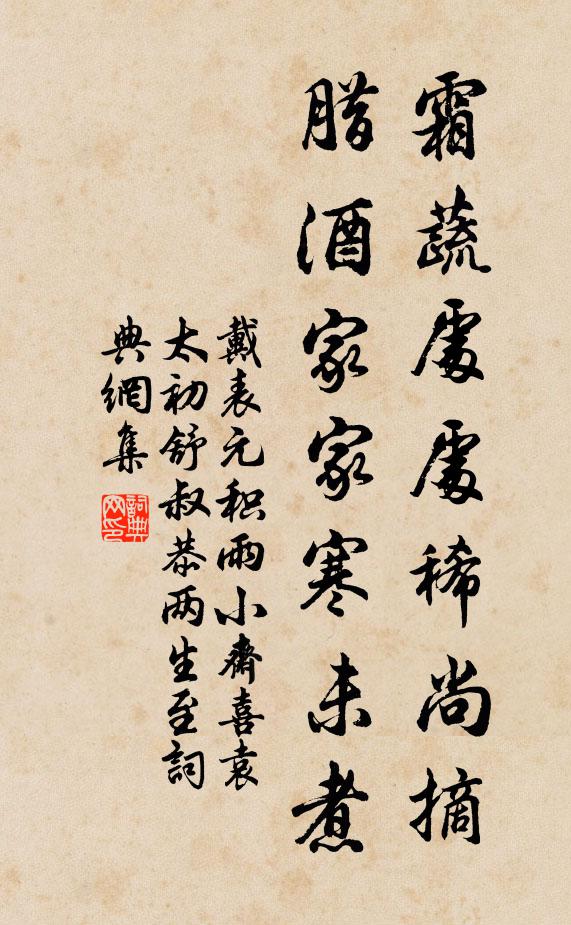 霜蔬處處稀尚摘
腊酒家家寒未煮
戴表元积雨小齋喜袁
太初舒叔恭两生至詞
典網集
詞典
网印